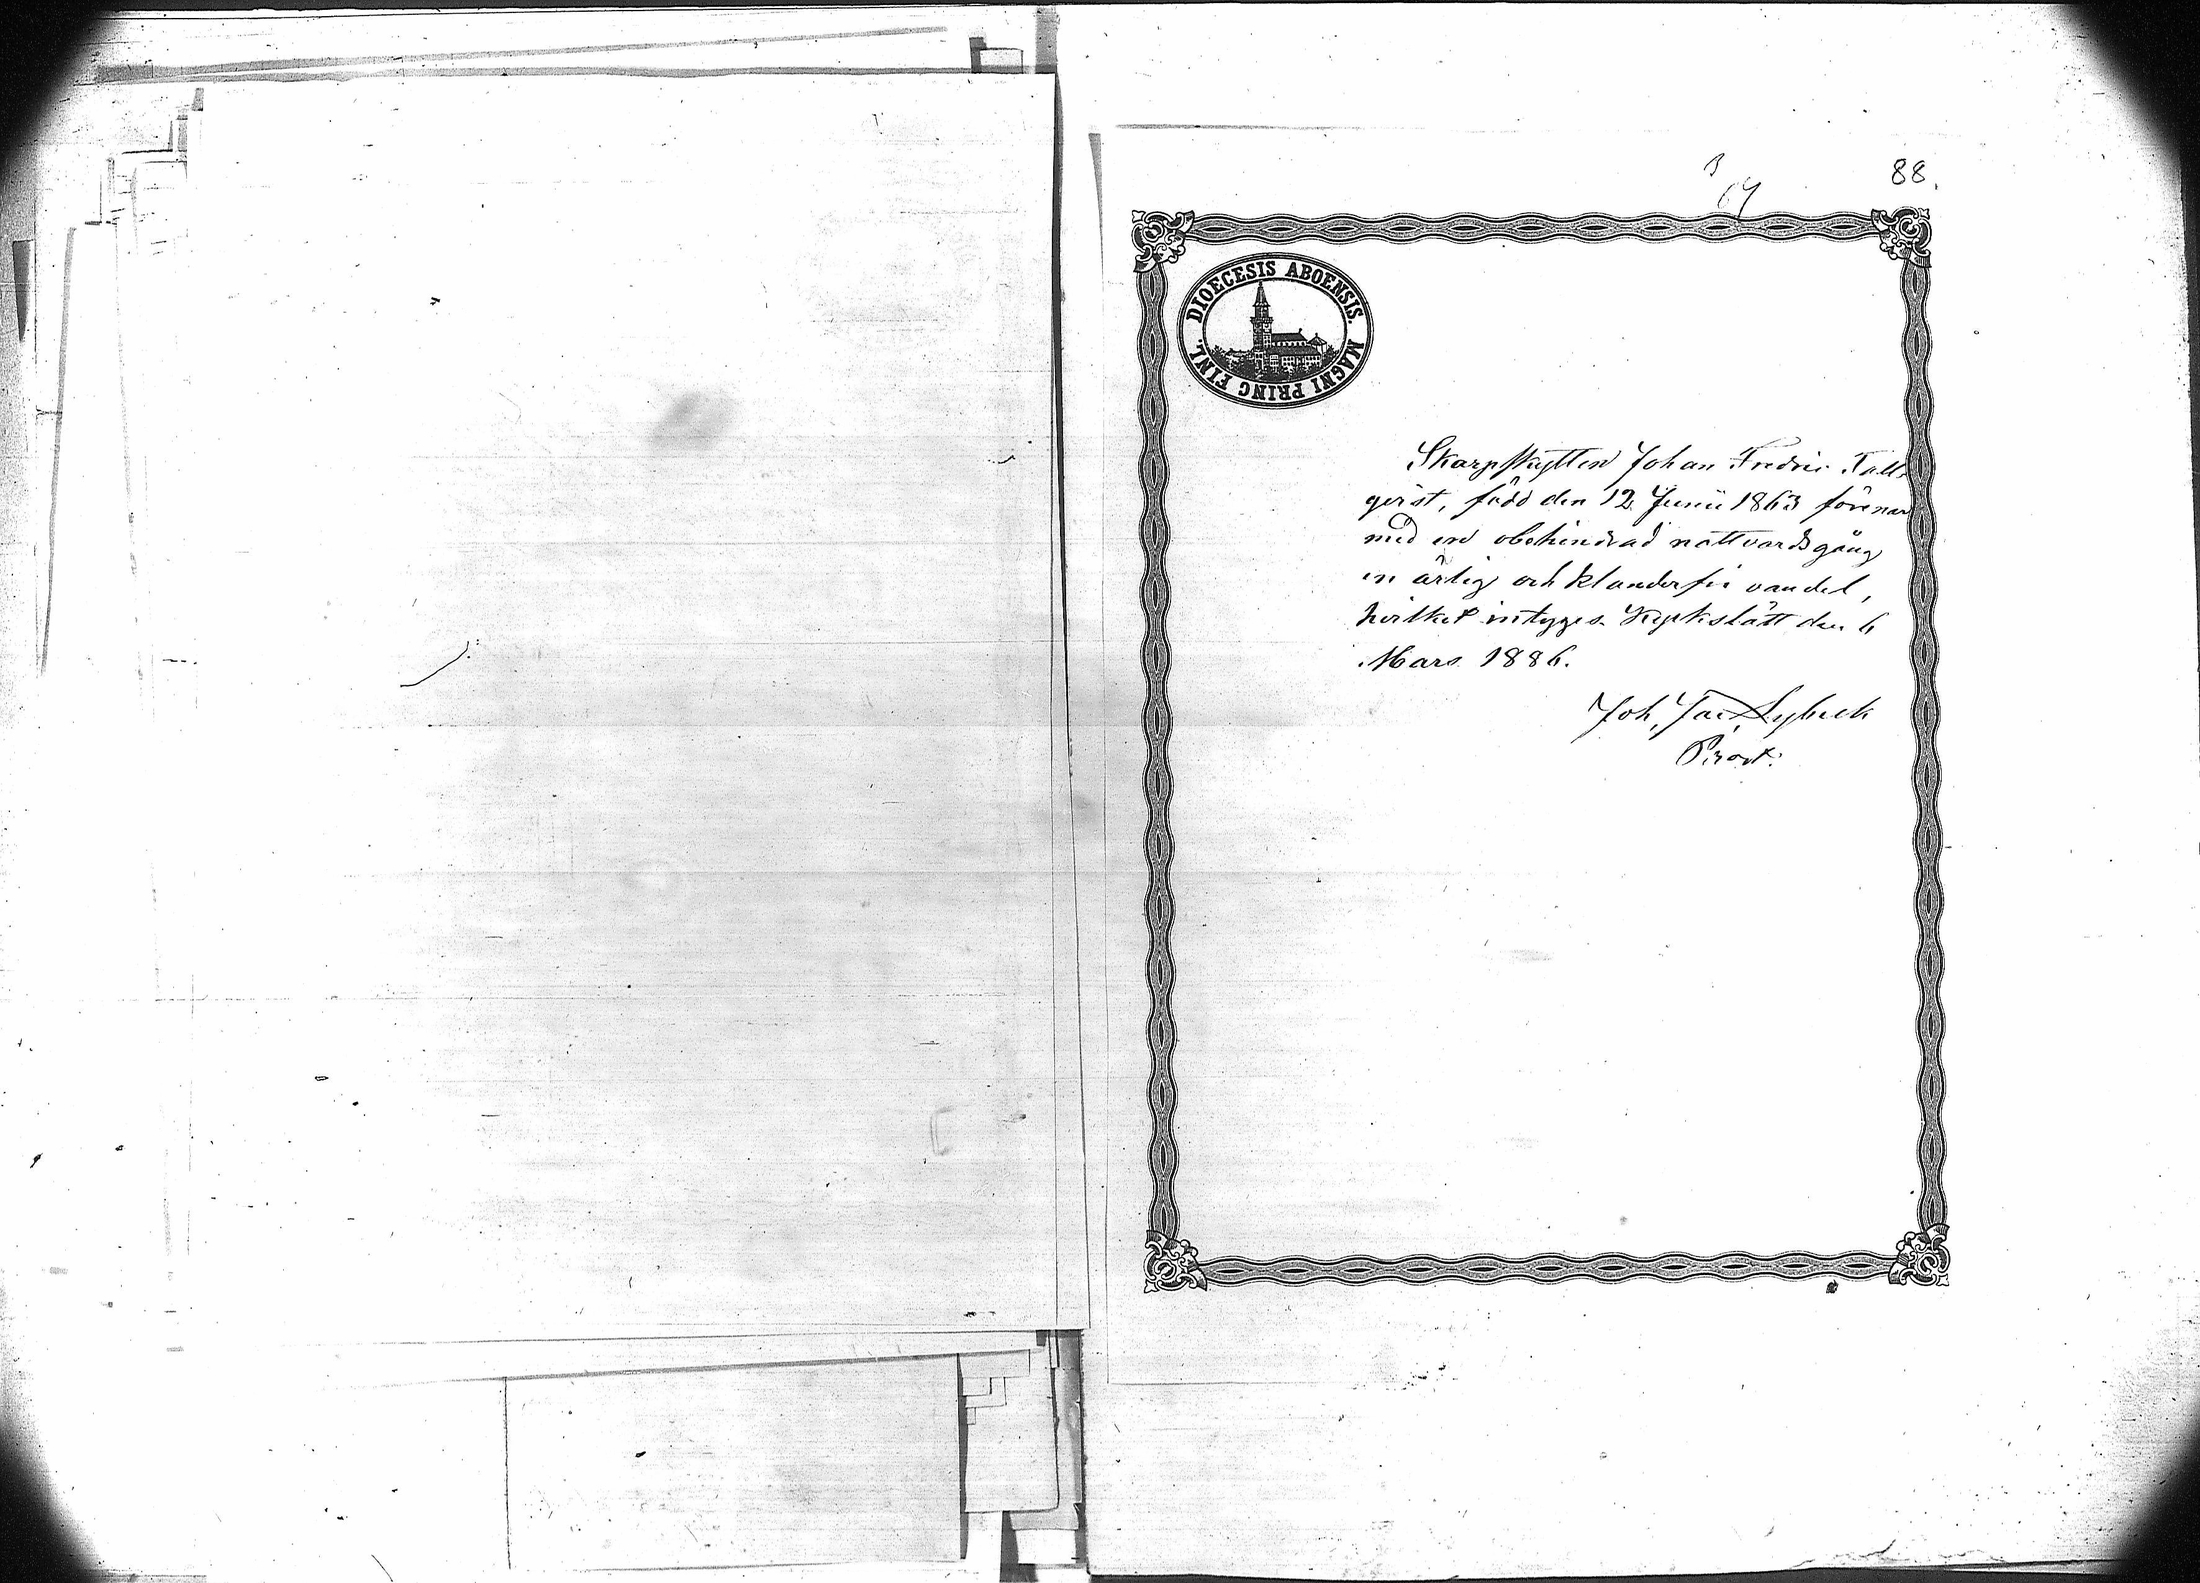 88.
67
DIOECESIS ABOENSIS. MAGNI PRINC FINL.
Skarpskytten Johan Fredric Tall-
qvist, född den 12 Junii 1863 förenar
med en obehindrad nattvardsgång
en ärlig och klanderfri vandel,
hvilket intygas. Kyrkslätt den 6
Mars 1886.
Joh. Jac. Sybeck
Prost.